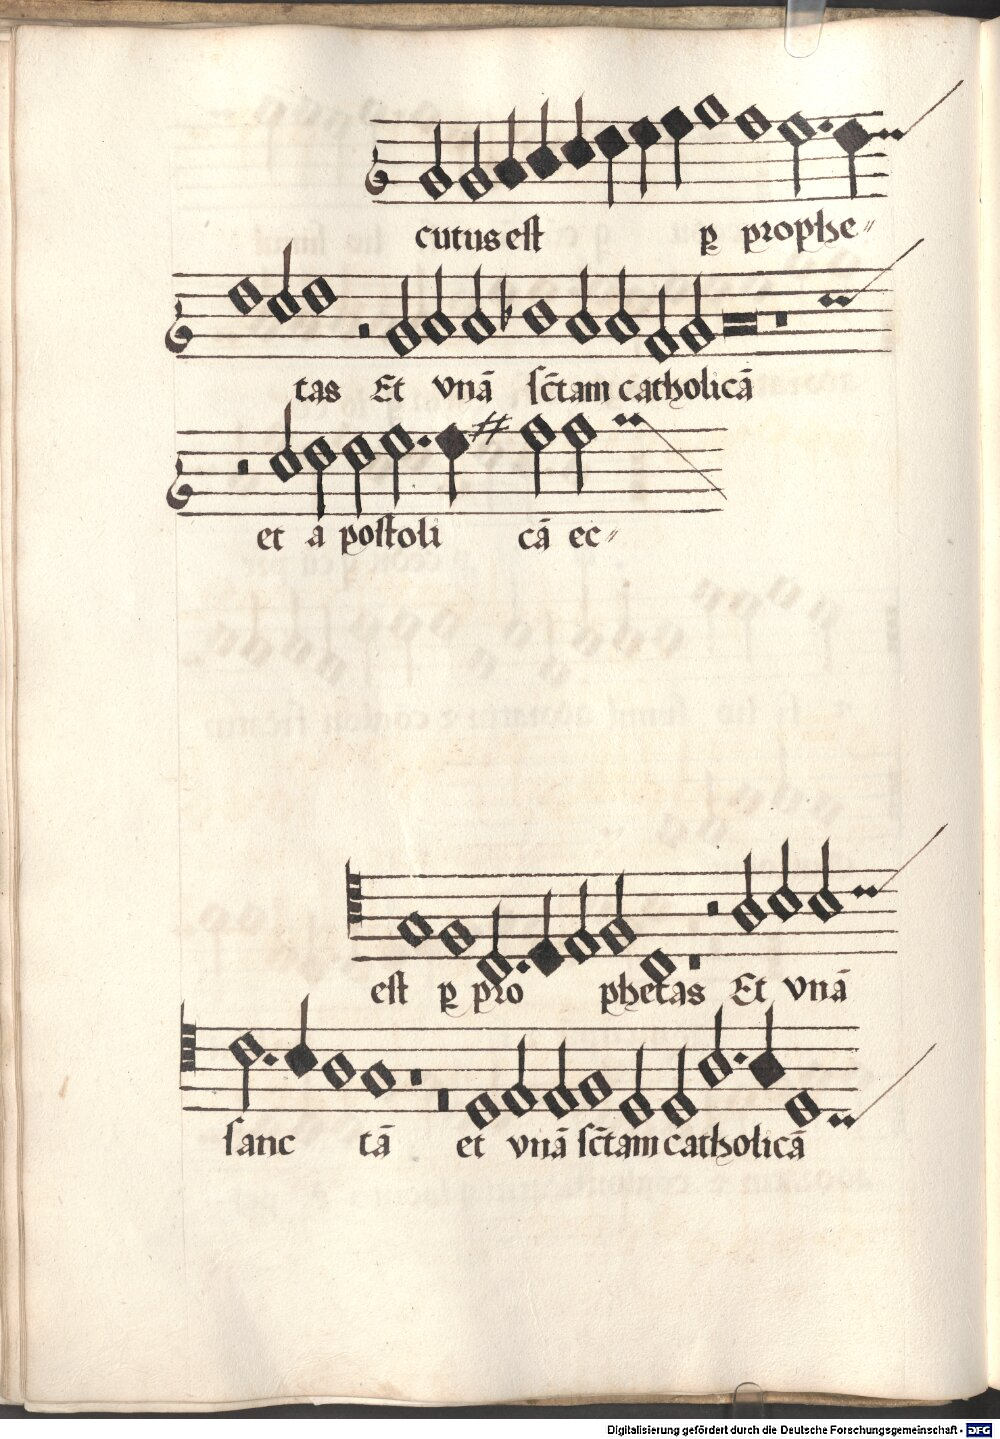 cutus est ꝑ prophe〃
tas Et vnā sc̄tam catholicā
et a postoli cā ec〃
est ꝑ pro phetas Et vnā
sanc tā et vnā sc̄tam catholicā
Digitalisierung gefördert durch die Deutsche Forschungsgemeinschaft - DFG